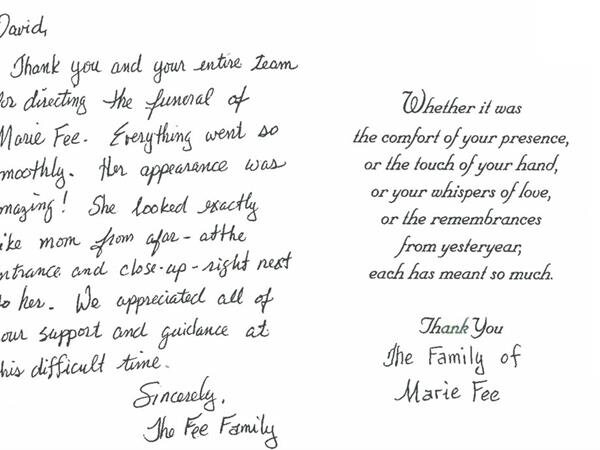 David,
Thank you and your entire team
or directing the funeral of
Marie Fee. Everything went so
moothly. Her appearance was
mazing! She looked exactly
ike mom from afar - at the
ntrance and close-up - right next
o her. We appreciated all of
our support and guidance at
his difficult time.
Sincerely,
The Fee Family
Whether it was
the comfort of your presence,
or the touch of your hand,
or your whispers of love,
or the remembrances
from yesteryear,
each has meant so much.
Thank You
The Family of
Marie Fee